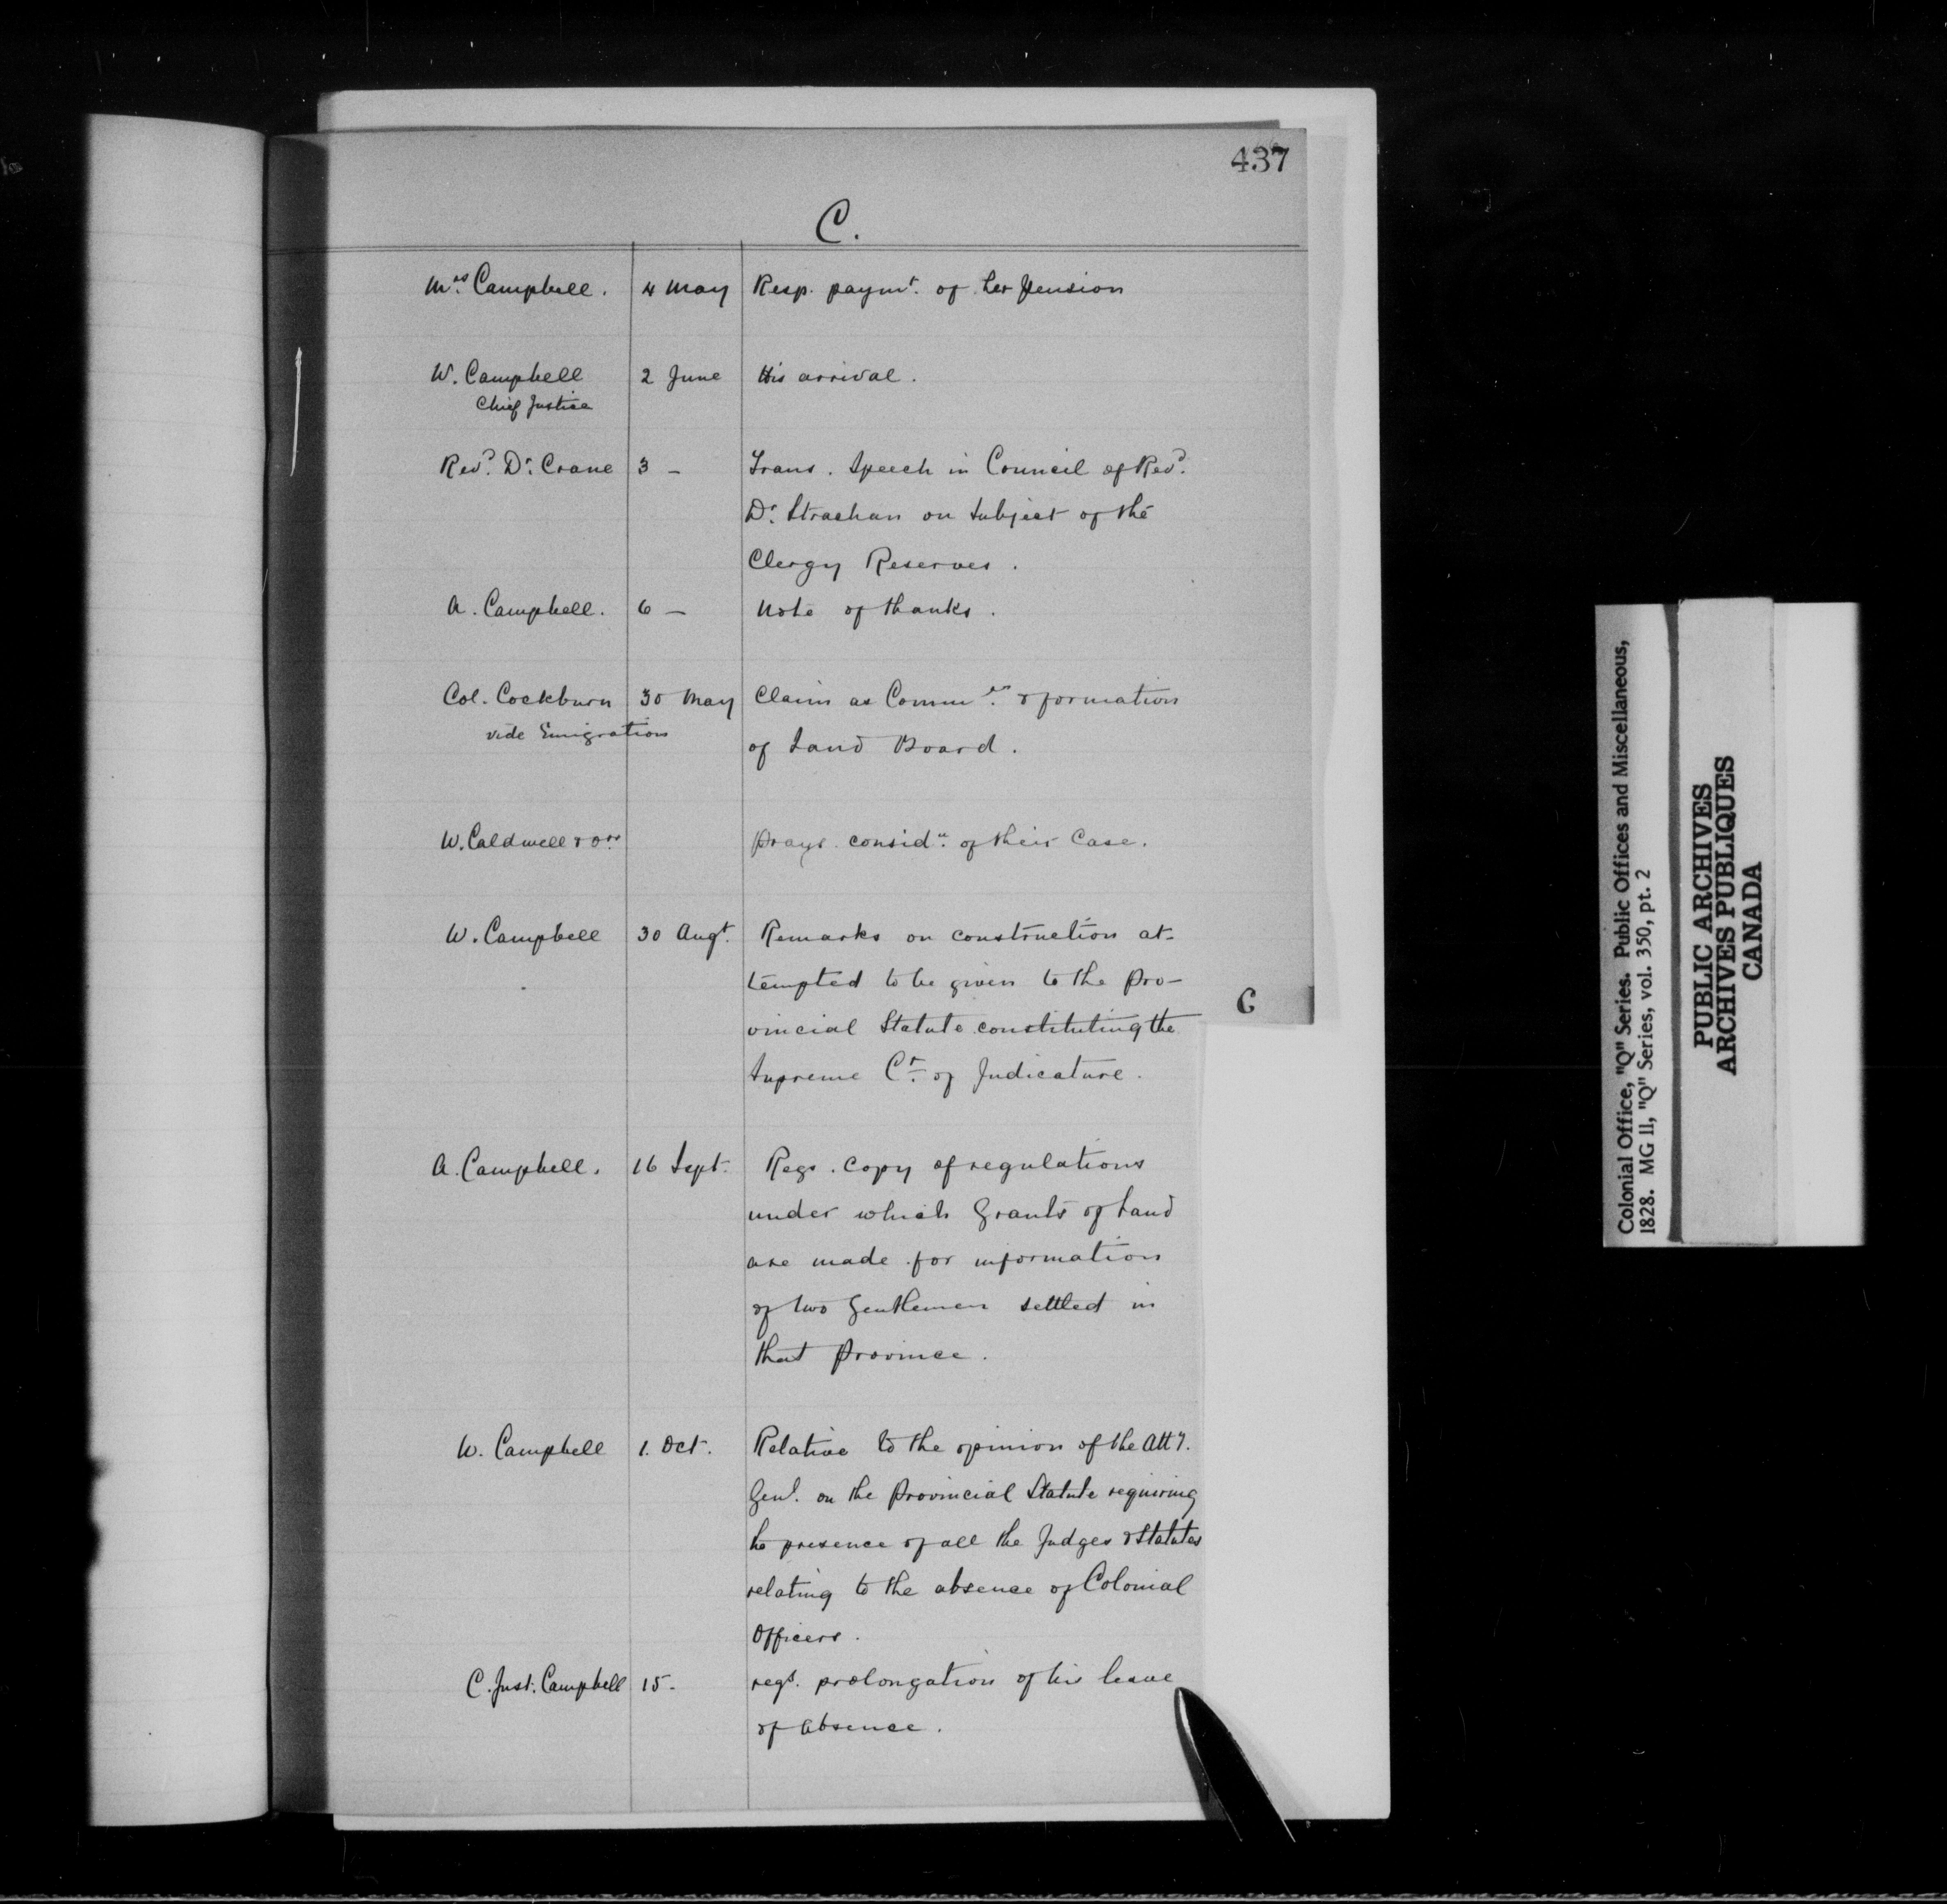 437
C.
Mrs. Campbell. 4 May Resp. paymt. of her pension
W. Campbell 2 June His arrival.
Chief Justice
Revd. Dr. Crane 3 – Trans. Speech in Council of Revd.
Dr. Strachan on Subject of the
Clergy Reserves.
A. Campbell. 6 – Note of thanks.
Col. Cockburn 30 May Claim as Commrs. & formation
vide Emigration
of Land Board.
W. Caldwell & ors. prays. considn. of their Case.
W. Campbell 30 Augt. Remarks on construction at-
tempted to be given to the Pro-
vincial Statute constituting the
Supreme Ct. of Judicature.
C
A. Campbell. 16 Sept. Reqs. copy of regulations
under which Grants of Land
are made for information
of two Gentlemen settled in
that Province.
W. Campbell 1. Oct. Relative to the opinion of the Atty.
Genl. on the Provincial Statute requiring
he presence of all the Judges & Statutes
relating to the absence of Colonial
Officers.
C. Just. Campbell 15- reqs. prolongation of his leave
of absence.
Colonial Office, "Q" Series. Public Offices and Miscellaneous,
1828. MG 11, "Q" Series, vol. 350, pt. 2
PUBLIC ARCHIVES
ARCHIVES PUBLIQUES
CANADA